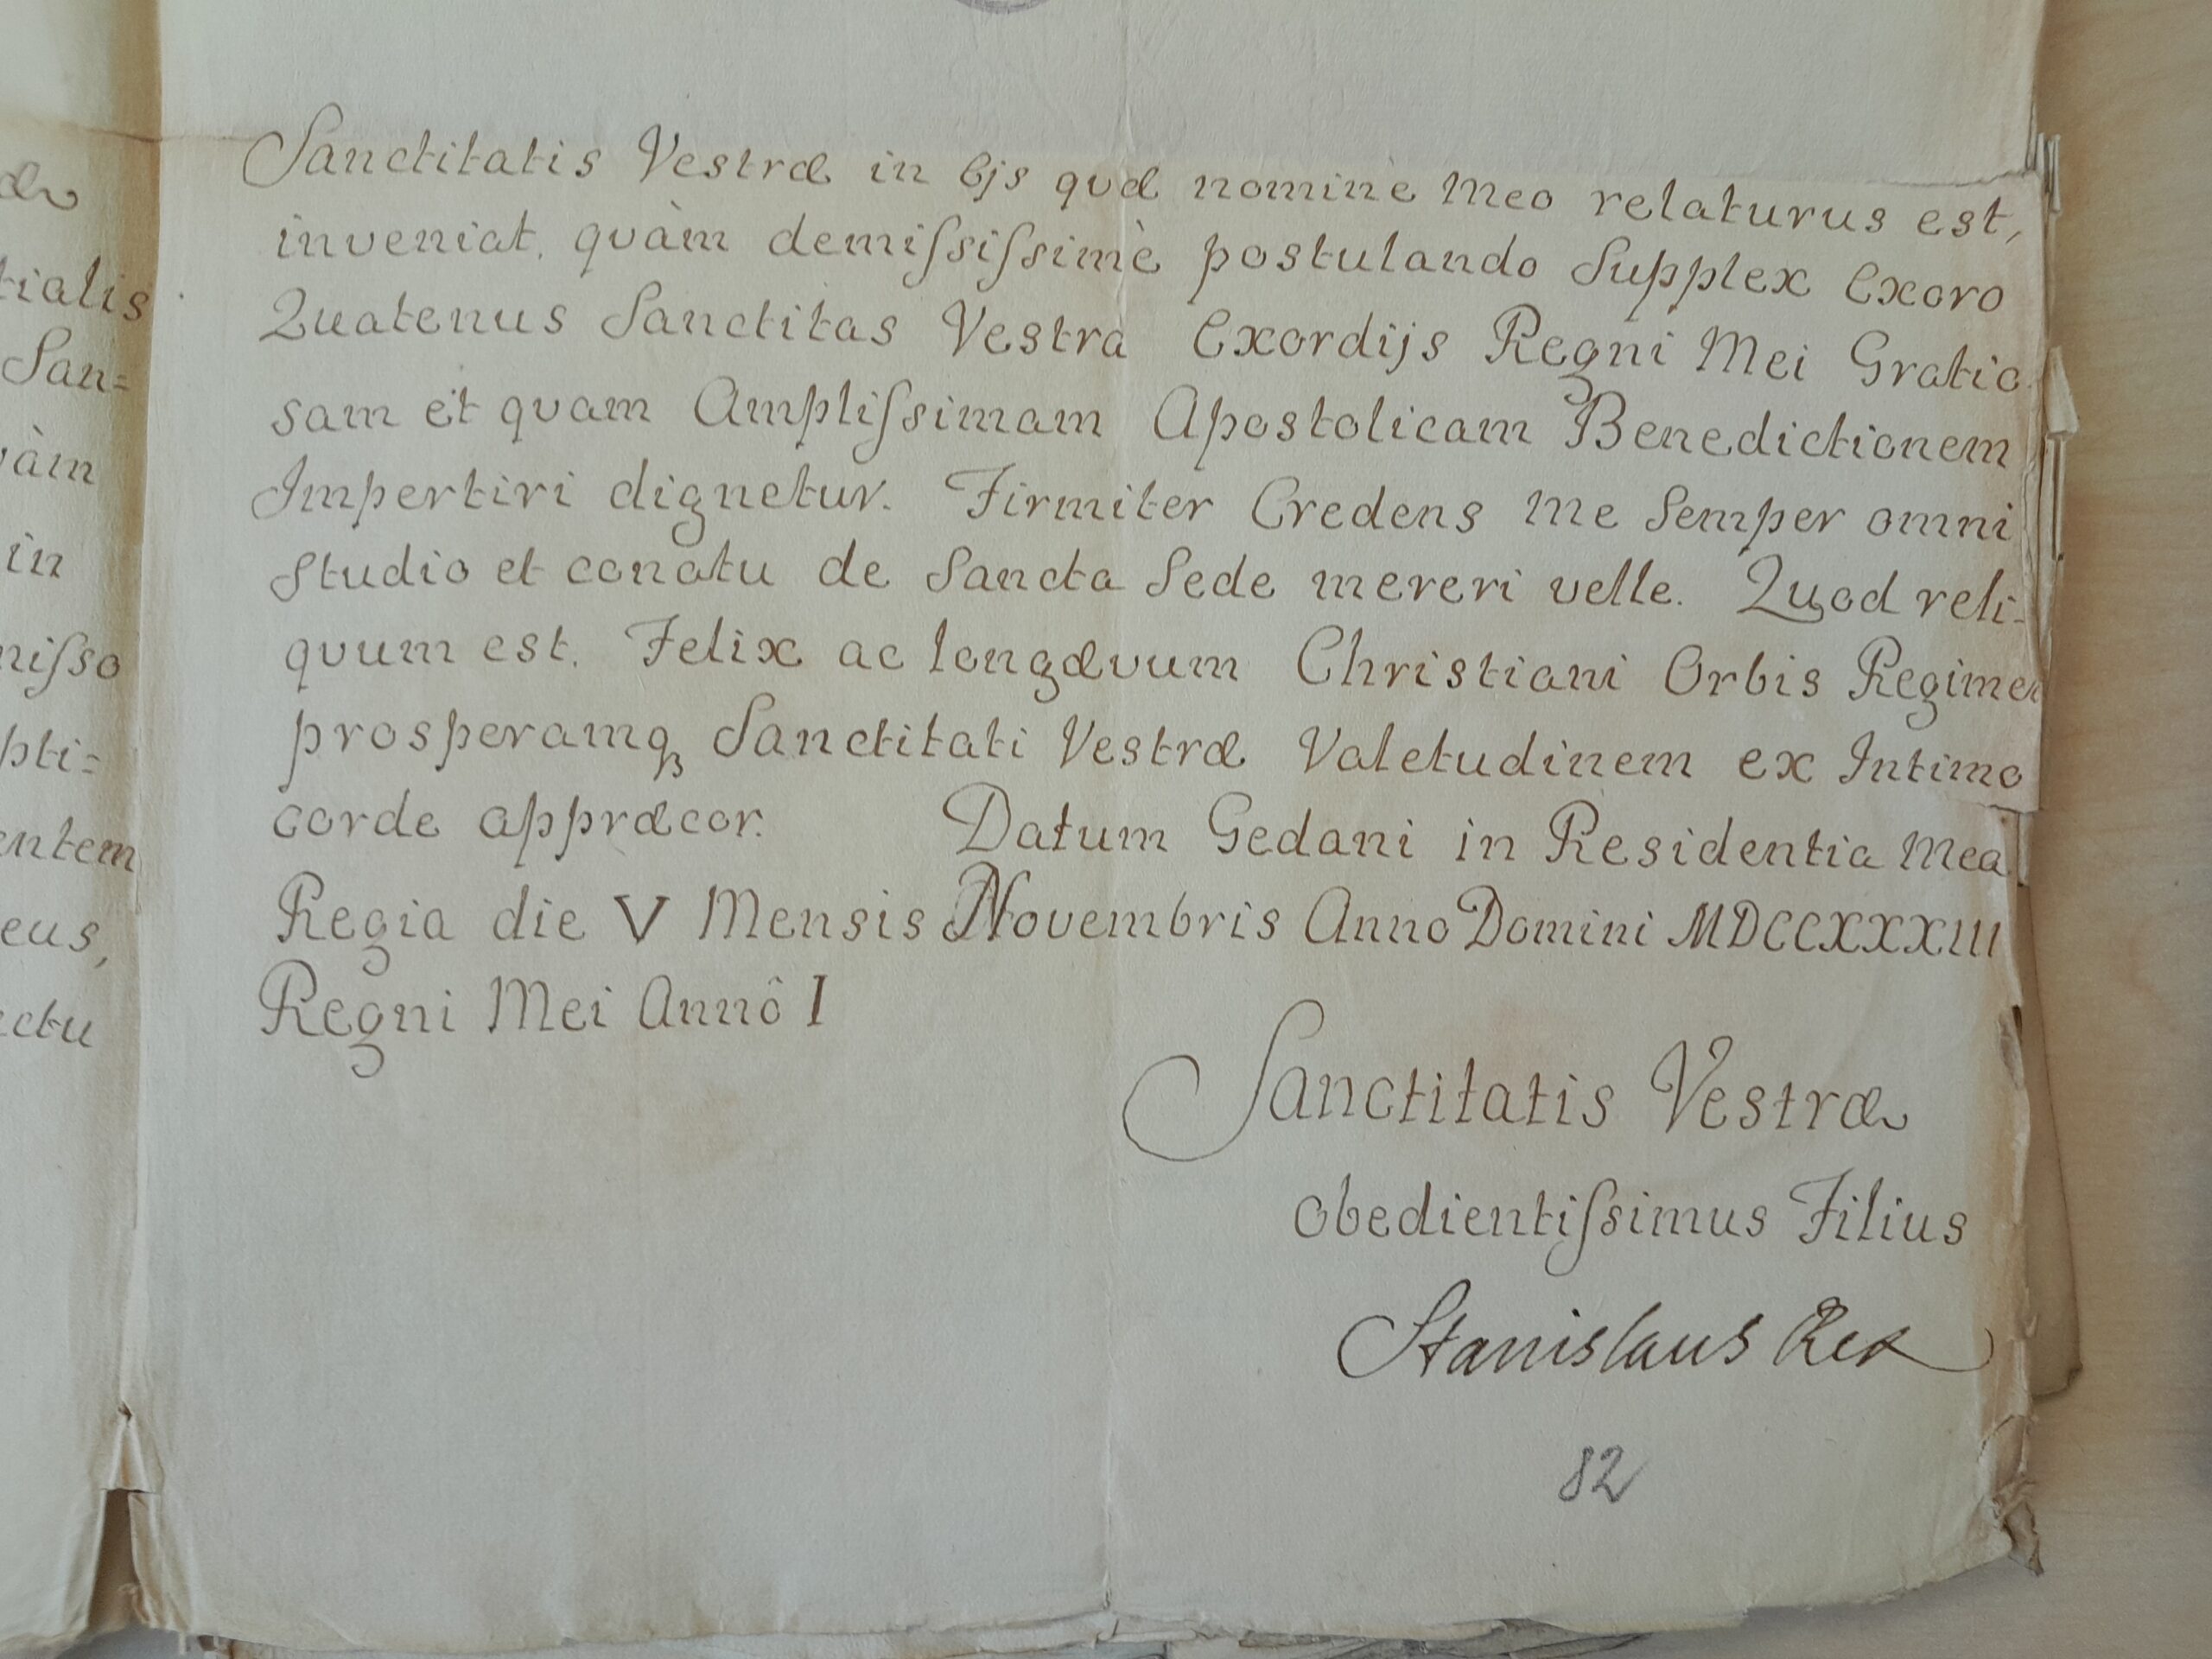 æ
tialis
San=
vàm
in
niſso
pti=
entem
eus,
ctu
Sanctitatis Vestræ in Ejs quæ nominè Meo relaturus est,
inveniat, quàm demiſsiſsimè postulando Supplex Exoro
Quatenus Sanctitas Vestra Exordijs Regni Mei Gratio
sam et quam Ampliſsimam Apostolicam Benedictionem
Impertiri dignetur. Firmiter Credens Me Semper omni
Studio et conatu de Sancta Sede mereri velle. Quod reli-
quum est. Felix ac longævum Christiani Orbis Regimen
prosperamqꝫ Sanctitati Vestræ Valetudinem ex Intimo
corde appræcor. Datum Gedani in Residentia Mea
Regia die V Mensis Novembris Anno Domini MDCCXXXIII
Regni Mei Annô I
Sanctitatis Vestræ
Obedientiſsimus Filius
Stanislaus Rex
82